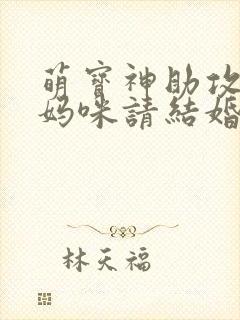 萌寶神助攻
媽咪請結婚
林天福